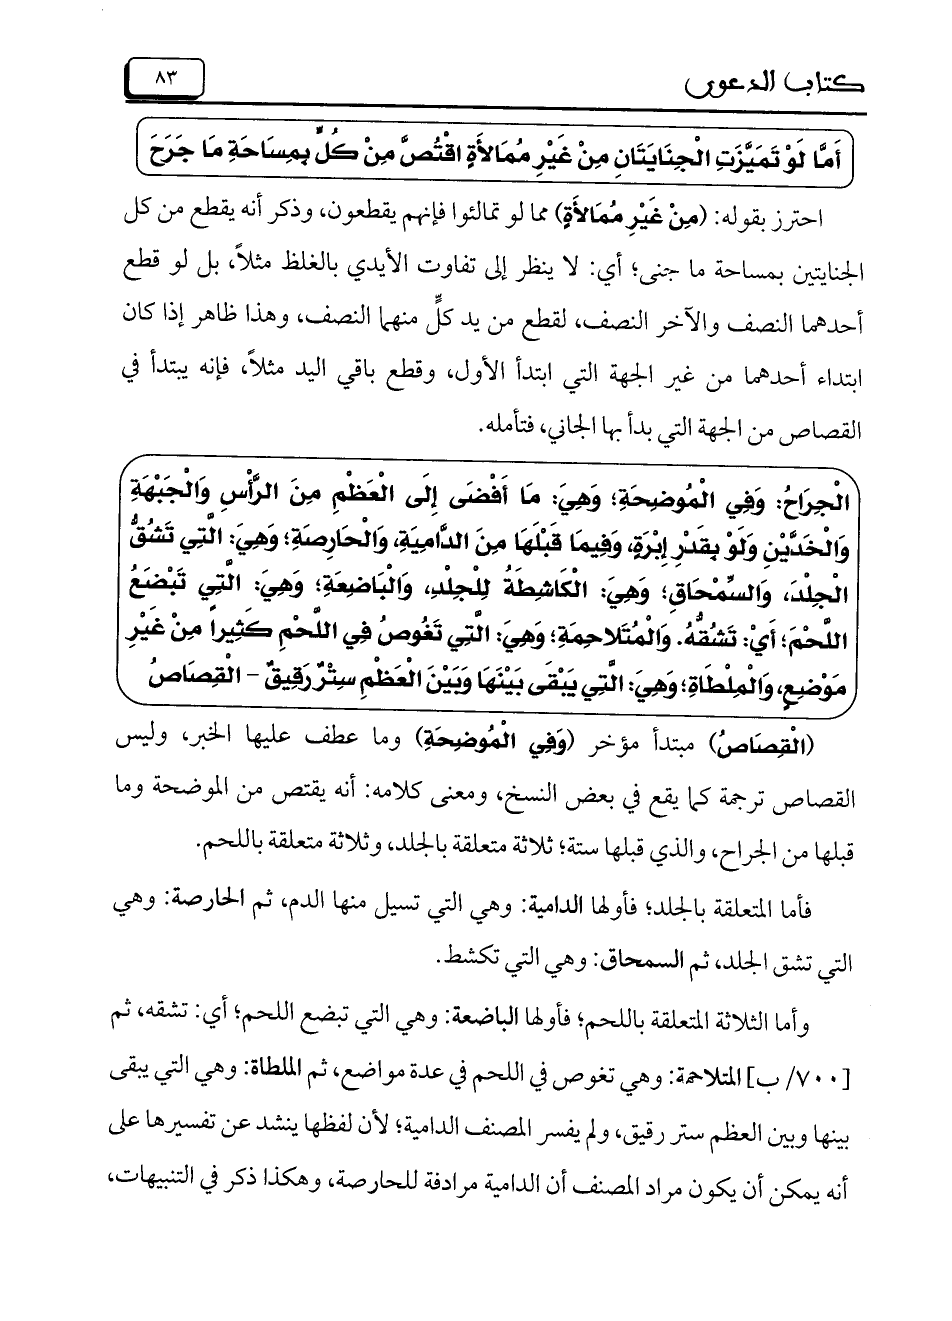 كتاب الدعوى
٨٣
أَمَّا لَوْ تَمَيَّزَتِ الْجِنَايَتَانِ مِنْ غَيْرِ مُمَالأَةٍ اقْتُصَّ مِنْ كُلٍّ بِمِسَاحَةِ مَا جَرَحَ
احترز بقوله: (مِنْ غَيْرِ مُمَالأَةٍ) مما لو تمالئوا فإنهم يقطعون، وذكر أنه يقطع من كل
الجنايتين بمساحة ما جنى؛ أي: لا ينظر إلى تفاوت الأيدي بالغلظ مثلاً، بل لو قطع
أحدهما النصف والآخر النصف، لقطع من يد كلٍّ منهما النصف، وهذا ظاهر إذا كان
ابتداء أحدهما من غير الجهة التي ابتدأ الأول، وقطع باقي اليد مثلاً، فإنه يبتدأ في
القصاص من الجهة التي بدأ بها الجاني، فتأمله.
الْجِرَاحُ: وَفِي الْمُوضِحَةِ؛ وَهِيَ: مَا أَفْضَى إِلَى الْعَظْمِ مِنَ الرَّأْسِ وَالْجَبْهَةِ
وَالْخَدَّيْنِ وَلَوْ بِقَدْرِ إِبْرَةٍ، وَفِيمَا قَبْلَهَا مِنَ الدَّامِيَةِ، وَالْحَارِصَةِ؛ وَهِيَ: الَّتِي تَشُقُّ
الْجِلْدَ، وَالسِّمْحَاقِ؛ وَهِيَ: الْكَاشِطَةُ لِلْجِلْدِ، وَالْبَاضِعَةِ؛ وَهِيَ: الَّتِي تَبْضَعُ
اللَّحْمَ؛ أَيْ: تَشُقُّهُ. وَالْمُتَلاحِمَةِ؛ وَهِيَ: الَّتِي تَغُوصُ فِي اللَّحْمِ كَثِيراً مِنْ غَيْرِ
مَوْضِعٍ، وَالْمِلْطَاةِ؛ وَهِيَ: الَّتِي يَبْقَى بَيْنَهَا وَبَيْنَ الْعَظْمِ سِتْرٌ رَقِيقٌ - الْقِصَاصُ
(الْقِصَاصُ) مبتدأ مؤخر (وَفِي الْمُوضِحَةِ) وما عطف عليها الخبر، وليس
القصاص ترجمة كما يقع في بعض النسخ، ومعنى كلامه: أنه يقتص من الموضحة وما
قبلها من الجراح، والذي قبلها ستة؛ ثلاثة متعلقة بالجلد، وثلاثة متعلقة باللحم.
فأما المتعلقة بالجلد؛ فأولها الدامية: وهي التي تسيل منها الدم، ثم الحارصة: وهي
التي تشق الجلد، ثم السمحاق: وهي التي تكشط.
وأما الثلاثة المتعلقة باللحم؛ فأولها الباضعة: وهي التي تبضع اللحم؛ أي: تشقه، ثم
[٧٠٠/ ب] المتلاحمة: وهي تغوص في اللحم في عدة مواضع، ثم الملطاة: وهي التي يبقى
بينها وبين العظم ستر رقيق، ولم يفسر المصنف الدامية؛ لأن لفظها ينشد عن تفسيرها على
أنه يمكن أن يكون مراد المصنف أن الدامية مرادفة للحارصة، وهكذا ذكر في التنبيهات،